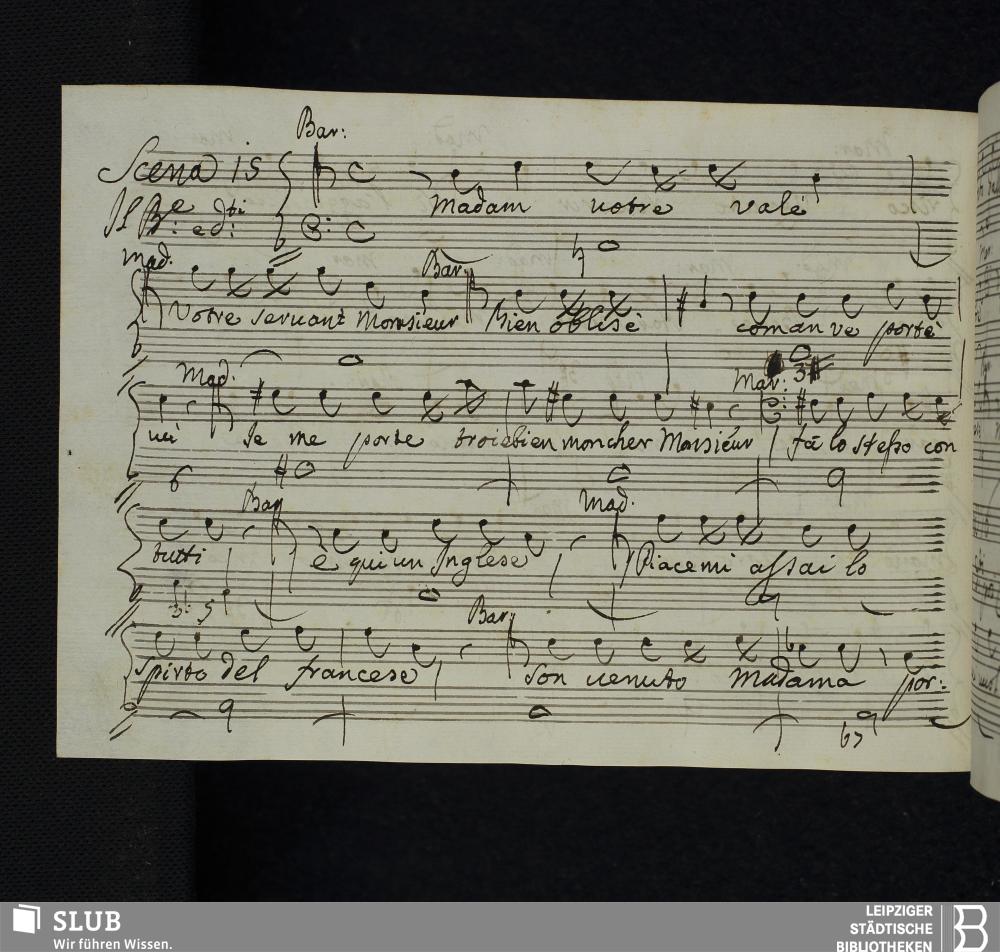 Bar:
Scena 15
Il B:e e dti:
Madam votre valè
Mad.
Bar:
Votre servant Monsieur bien oblisè coman ve portè
Mad.
Mar:
vù Je me porte troiebien moncher Monsieur fà lo stesso con
Bar
Mad.
tutti è qui un Inglese Piacemi assai lo
Bar:
spirto del francese son venuto Madama por:
SLUB
Wir führen Wissen.
LEIPZIGER
STÄDTISCHE
BIBLIOTHEKEN